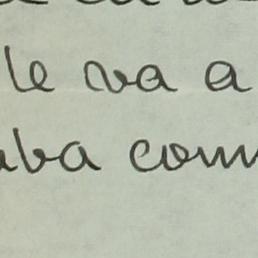 le va a
aba com